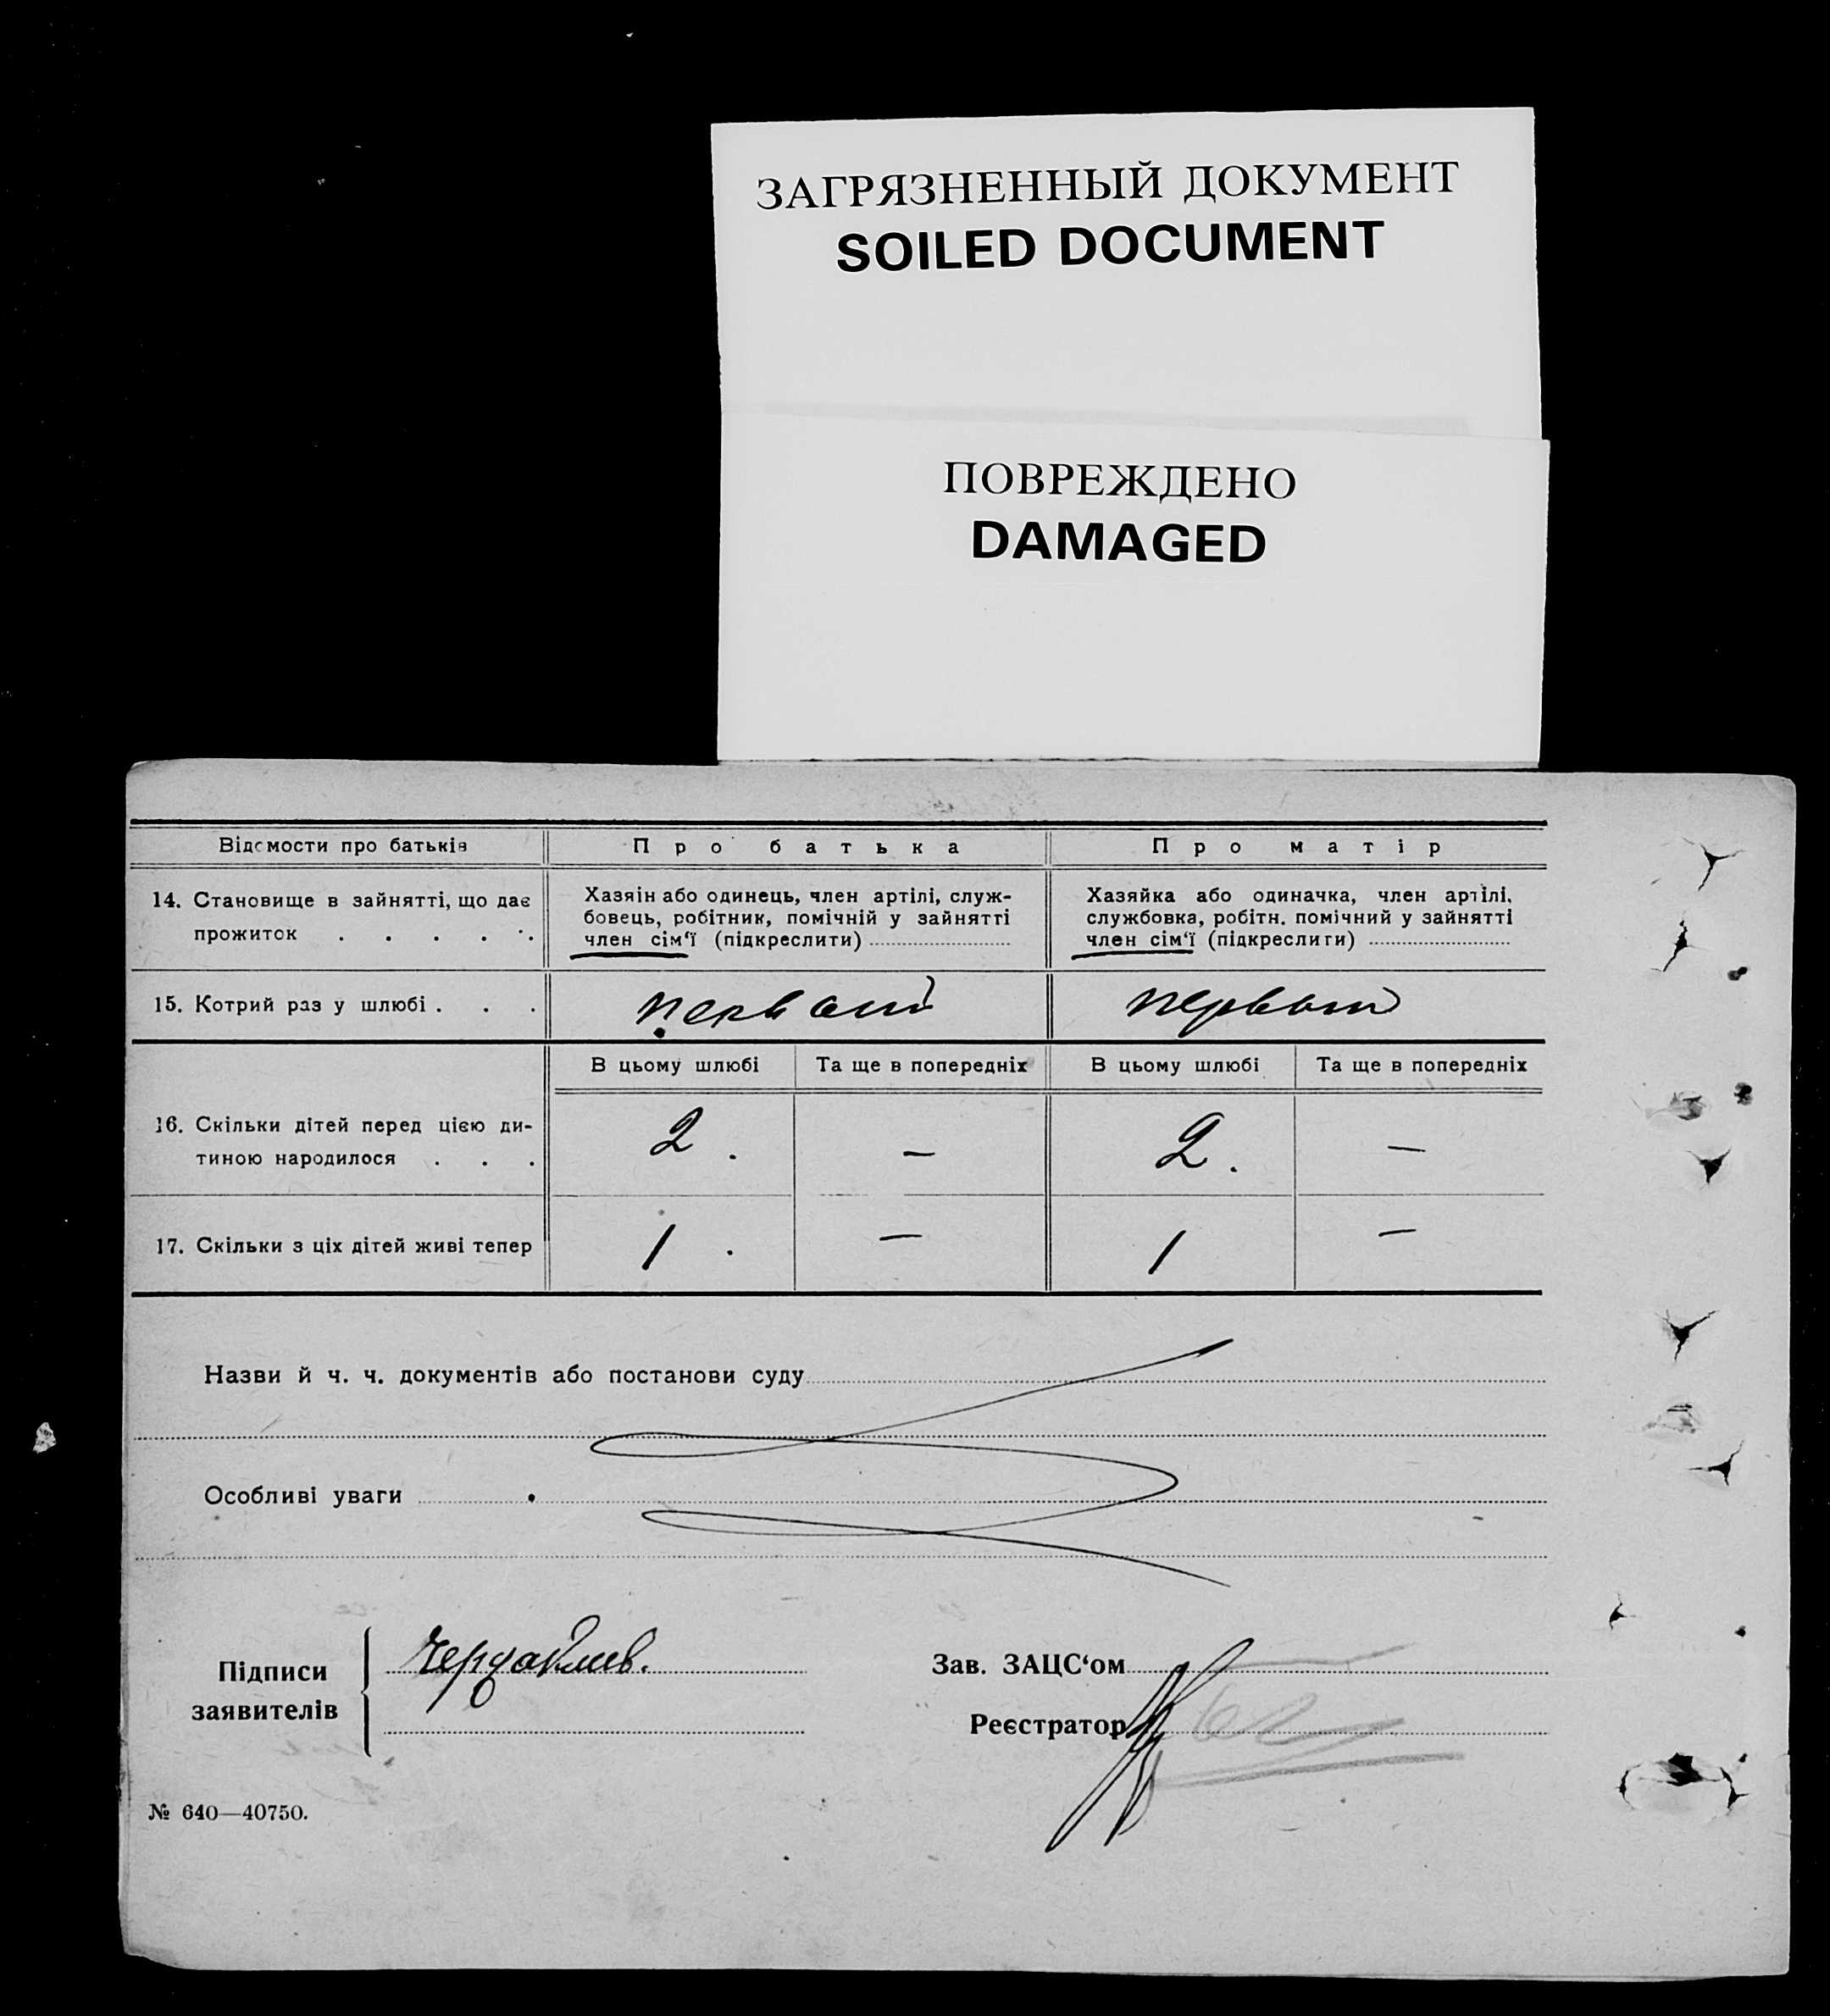 ЗАГРЯЗНЕННЫЙ ДОКУМЕНТ
SOILED DOCUMENT
ПОВРЕЖДЕНО
DAMAGED
Відомости про батьків
Про батька
Про матір
14. Становище в зайнятті, що дає
прожиток . . . . .
Хазяін або одинець, член артілі, служ-
бовець, робітник, помічній у зайнятті
член сім‘ї (підкреслити)
Хазяйка або одиначка, член артілі,
службовка, робітн. помічний у зайнятті
член сім‘ї (підкреслити)
15. Котрий раз у шлюбі . . .
первый
первый
В цьому шлюбі
Та ще в попередніх
В цьому шлюбі
Та ще в попередніх
16. Скільки дітей перед цією ди-
тиною народилося . . .
2.
—
2.
—
17. Скільки з ціх дітей живі тепер
1.
—
1
—
Назви й ч. ч. документів або постанови суду
Особливі уваги
Підписи
заявителів
Зав. ЗАЦС‘ом
Реєстратор
№ 640—40750.